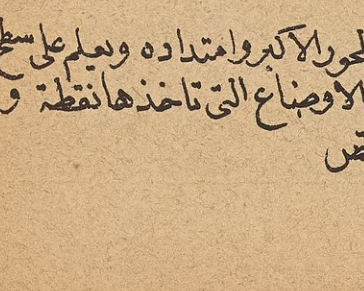 حور الاكبر وامتداده ويعلم على سطح
الاوضاع التى تاخذها نقطة و
ض